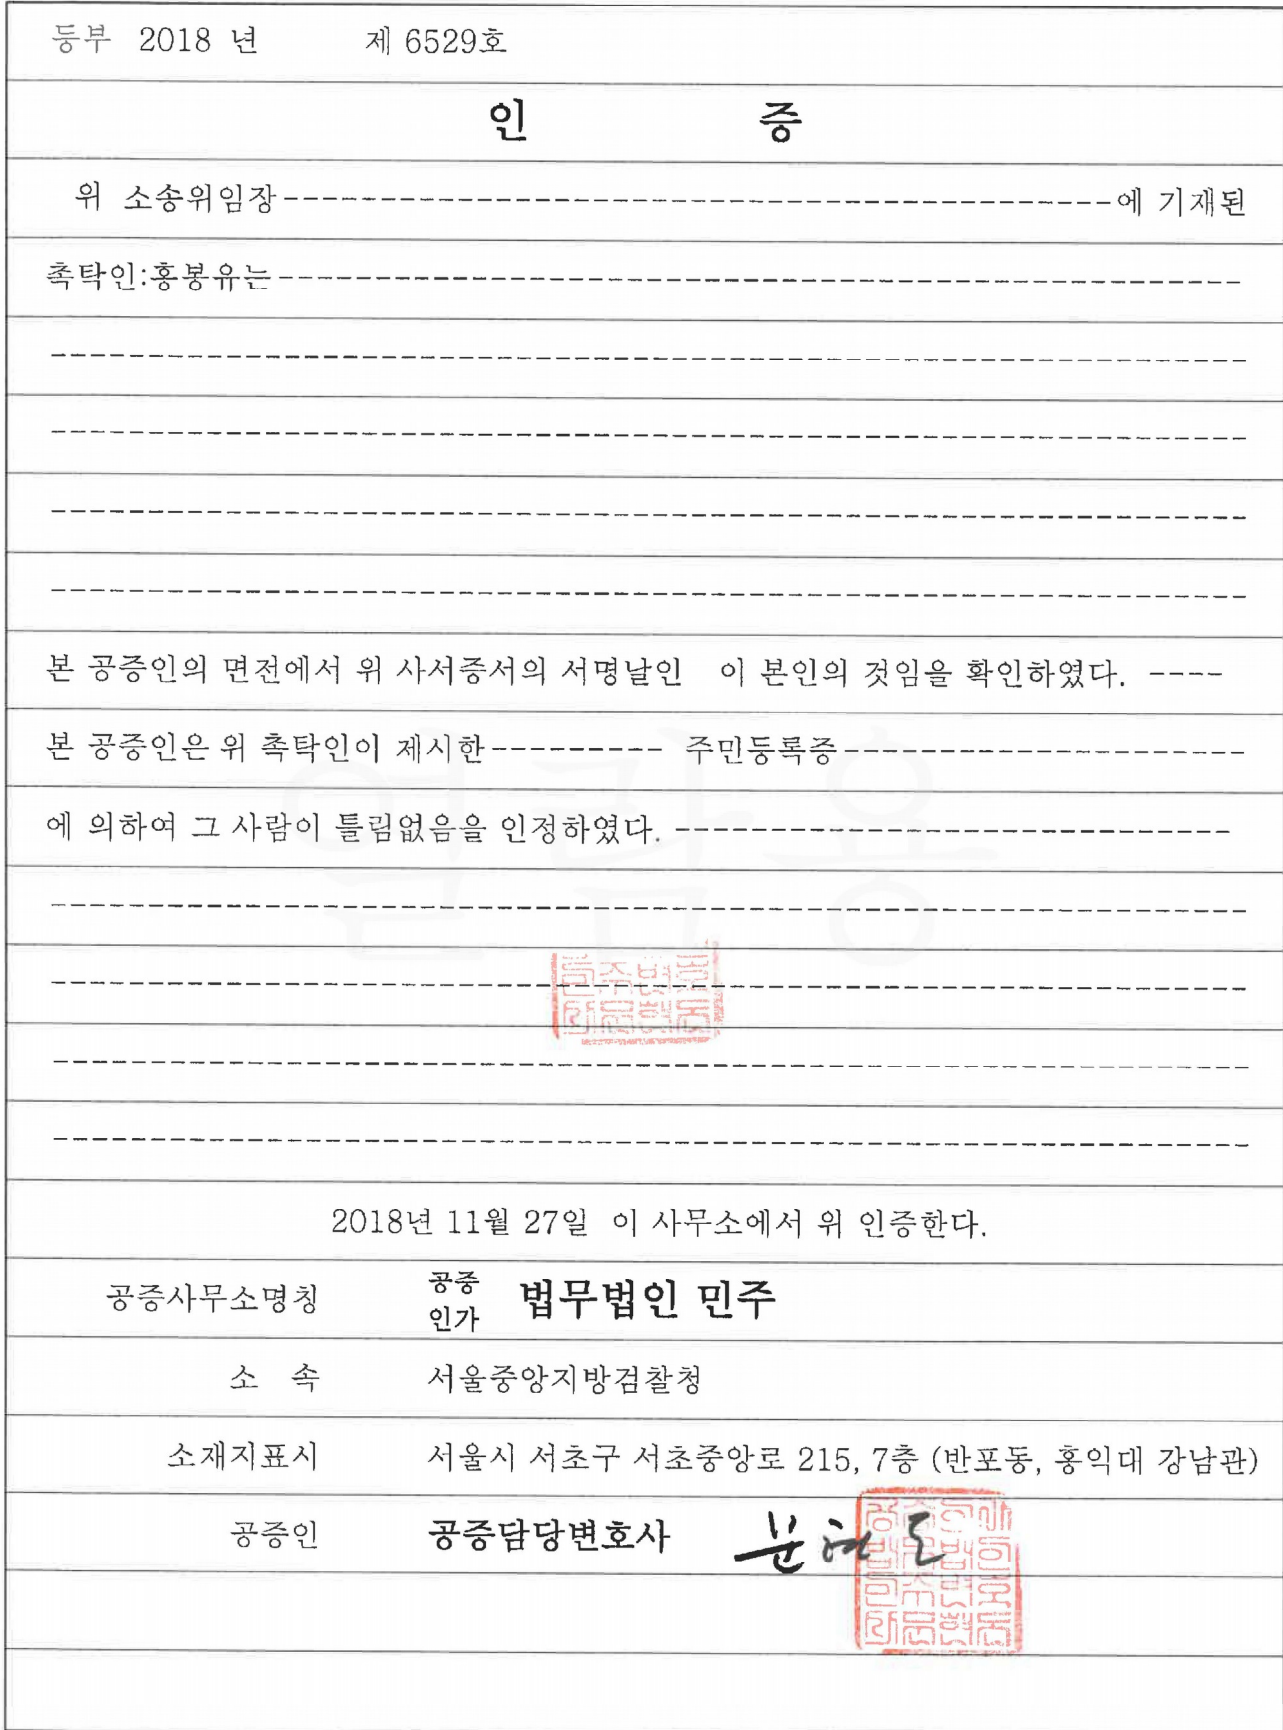 등부 2018 년 제 6529호
인 증
위 소송위임장------------------------------------------에 기재된
촉탁인:홍봉유는-------------------------------------------------
본 공증인의 면전에서 위 사서증서의 서명날인 이 본인의 것임을 확인하였다. ----
본 공증인은 위 촉탁인이 제시한--------- 주민등록증---------------------
에 의하여 그 사람이 틀림없음을 인정하였다. -----------------------------
열람용
2018년 11월 27일 이 사무소에서 위 인증한다.
공증사무소명칭 공증인가 법무법인 민주
소 속 서울중앙지방검찰청
소재지표시 서울시 서초구 서초중앙로 215, 7층 (반포동, 홍익대 강남관)
공증인 공증담당변호사